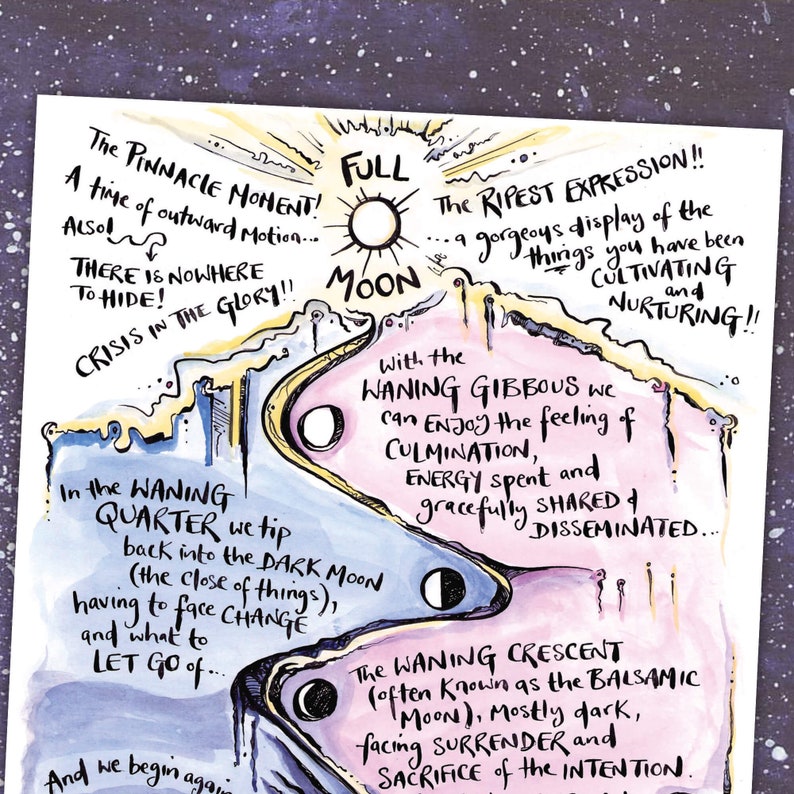 The PINNACLE MOMENT!
A time of outward motion...
Also!
THERE IS NOWHERE
TO HIDE!
CRISIS IN THE GLORY!!
FULL
MOON
The RIPEST EXPRESSION!!
...a gorgeous display of the
things you have been
CULTIVATING
and
NURTURING!!
With the
WANING GIBBOUS we
can ENJOY the feeling of
CULMINATION,
ENERGY spent and
gracefully SHARED &
DISSEMINATED...
In the WANING
QUARTER we tip
back into the DARK MOON
(the close of things),
having to face CHANGE
and what to
LET GO of...
The WANING CRESCENT
(often known as the BALSAMIC
MOON), mostly dark,
facing SURRENDER and
SACRIFICE of the INTENTION.
And we begin again